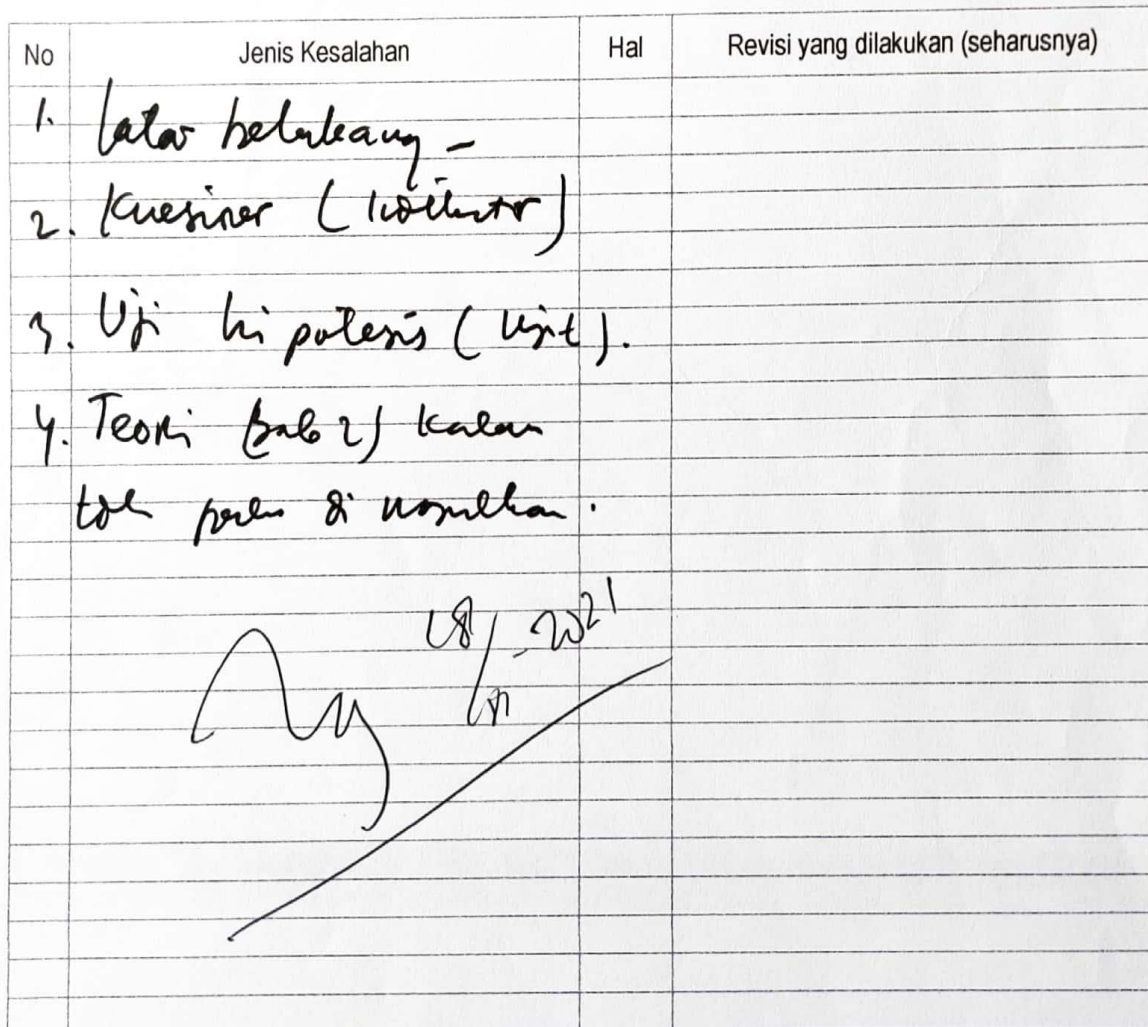 No Jenis Kesalahan Hal Revisi yang dilakukan (seharusnya)
1. latar belakang -
2. Kuesiner ( )
3. Uji hipotesis (Uji t).
4. Teori (Bab 2) kalau
tdk perlu di
/ - 2021